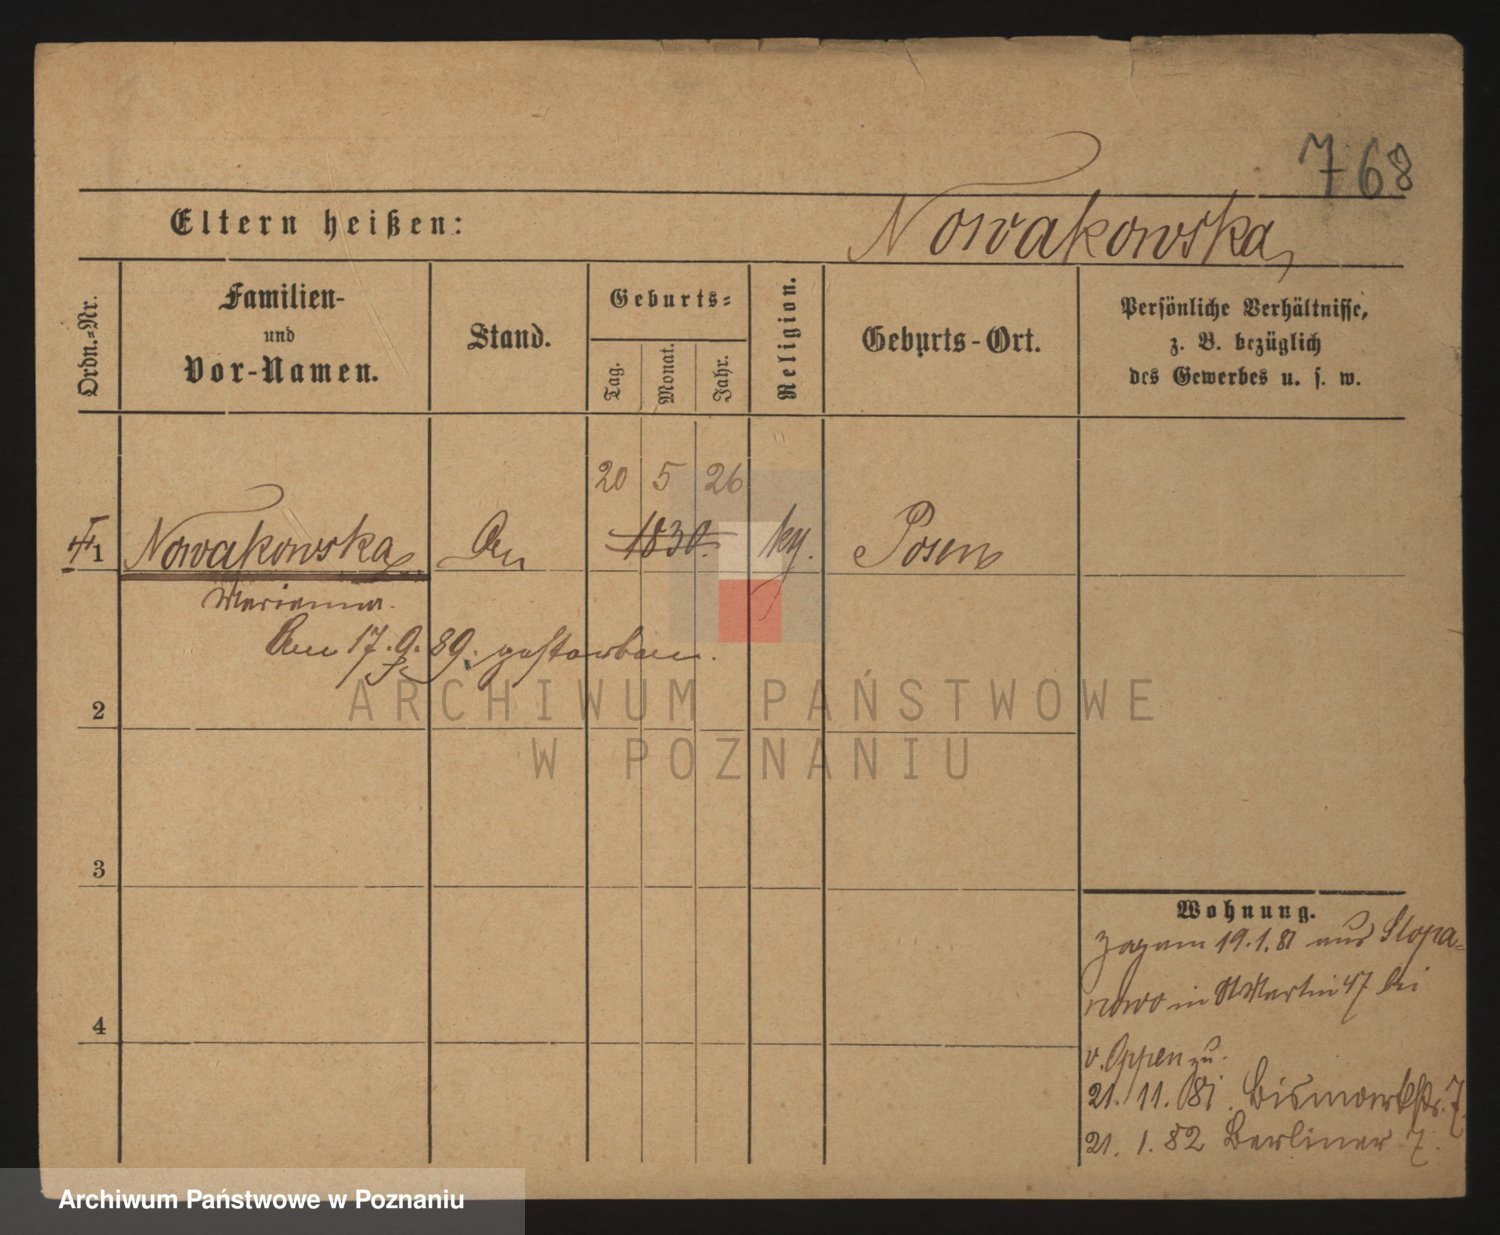 768
Eltern heißen:
Nowakowska,
Ordn.=Nr.
Familien-
und
Vor-Namen.
Stand.
Geburts=
Tag.
Monat.
Jahr.
Religion.
Geburts-Ort.
Persönliche Verhältnisse,
z. B. bezüglich
des Gewerbes u. s. w.
20 5 26
1 Nowakowska 1830. Posen
Marianna.
17. 9. 89. gestorben.
2
3
4
Wohnung.
zog am 19.1.81 aus Slopa=
nowo in St Martin 47 bei
v. Oppen zu.
21. 11. 81. Bismarkstr. 7.
21. 1. 82 Berliner 7.
ARCHIWUM PAŃSTWOWE
W POZNANIU
Archiwum Państwowe w Poznaniu